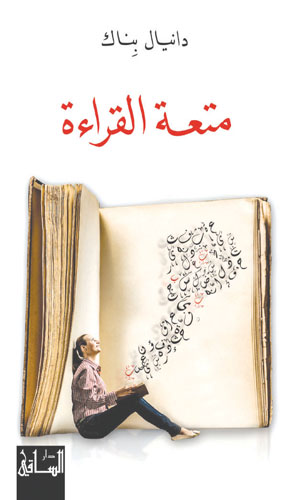 دانيال بِناك
متعة القراءة
دار
الساقي